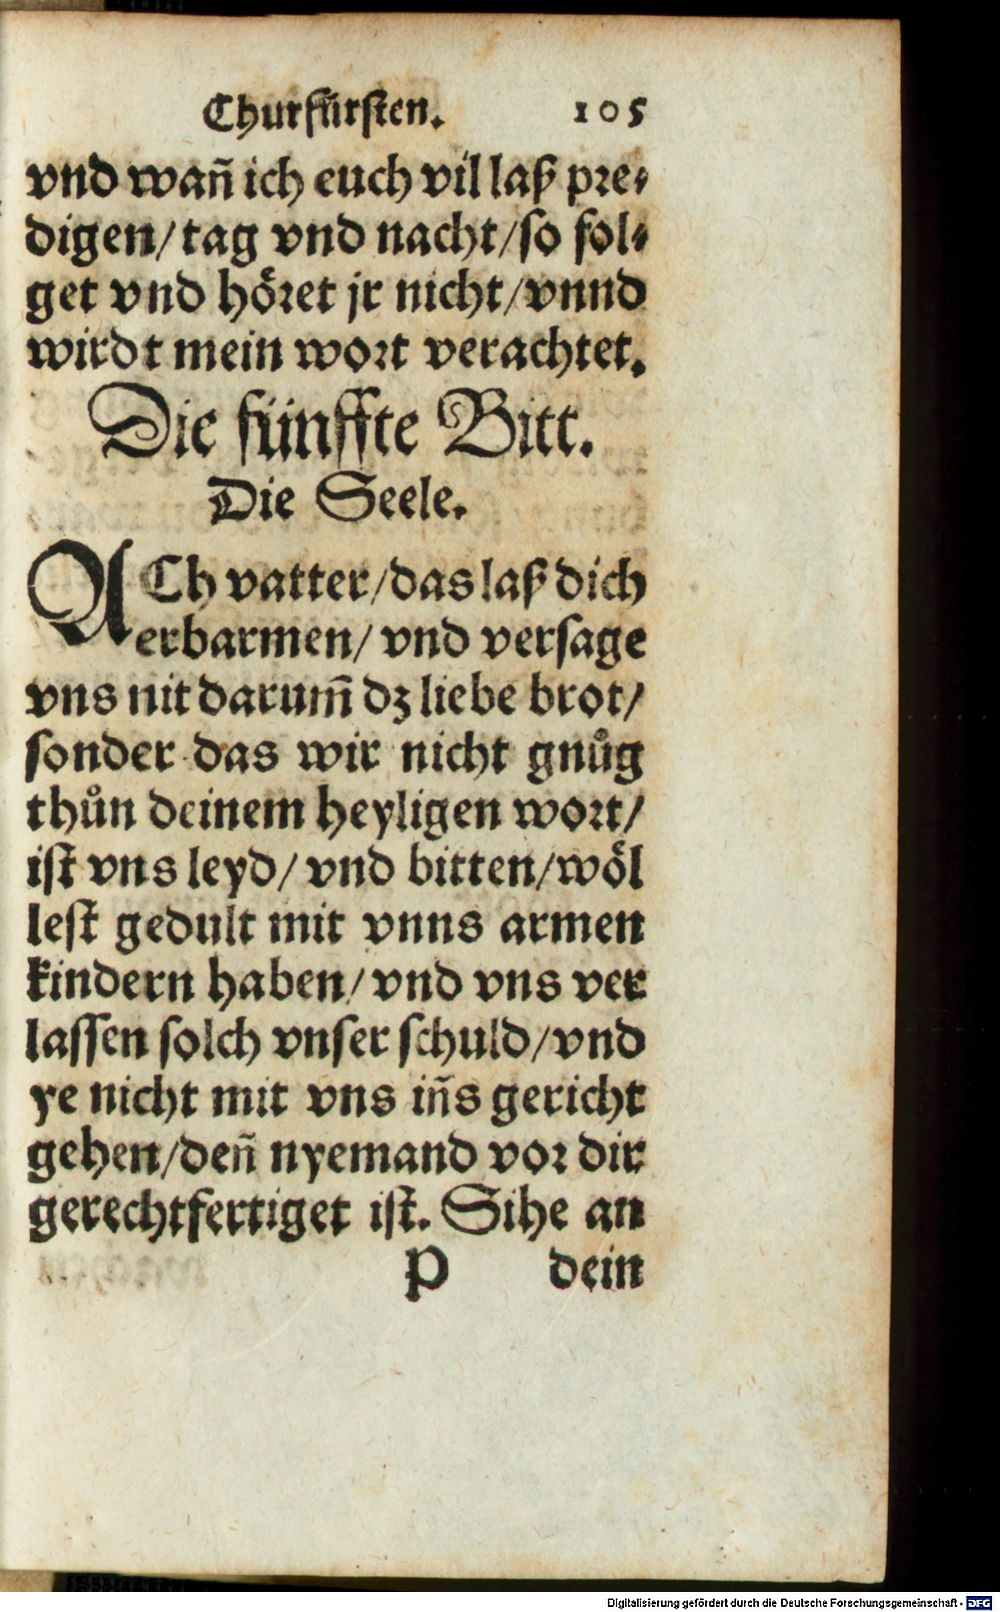 Churfürsten. 105
vnd wañ ich euch vil laß pre-
digen/ tag vnd nacht/ so fol-
get vnd höret jr nicht/ vnnd
wirdt mein wort verachtet.
Die fünffte Bitt.
Die Seele.
ACh vatter/ das laß dich
erbarmen/ vnd versage
vns nit darum̃ dz liebe brot/
sonder das wir nicht gnůg
thůn deinem heyligen wort/
ist vns leyd/ vnd bitten/ wöl
lest gedult mit vnns armen
kindern haben/ vnd vns ver
lassen solch vnser schuld/ vnd
ye nicht mit vns iñs gericht
gehen/ deñ nyemand vor dir
gerechtfertiget ist. Sihe an
P dein
Digitalisierung gefördert durch die Deutsche Forschungsgemeinschaft - DFG